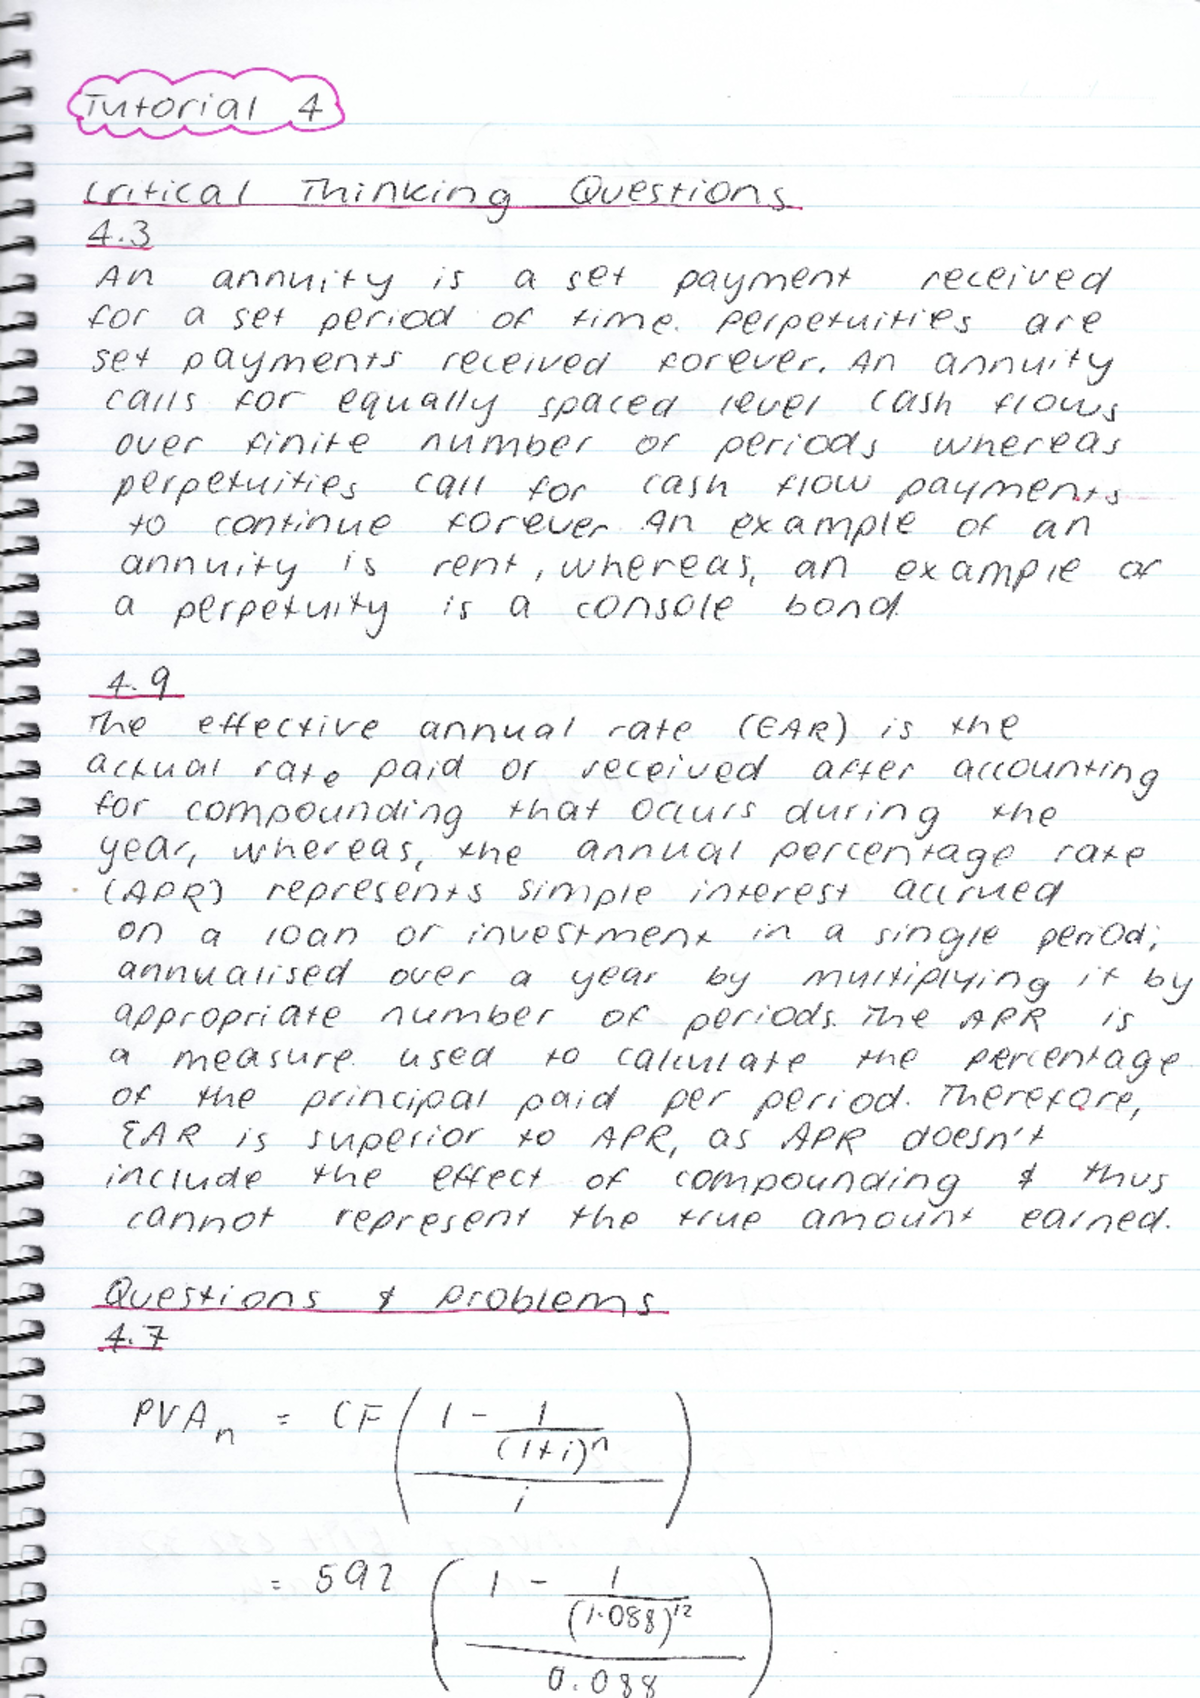 Tutorial 4
Critical Thinking Questions
4.3
An annuity is a set payment received
for a set period of time. Perpetuities are
set payments received forever. An annuity
calls for equally spaced level cash flows
over finite number of periods whereas
perpetuities call for cash flow payments
to continue forever. An example of an
annuity is rent, whereas, an example of
a perpetuity is a console bond.
4.9
The effective annual rate (EAR) is the
actual rate paid or received after accounting
for compounding that occurs during the
year, whereas, the annual percentage rate
(APR) represents simple interest accrued
on a loan or investment in a single period;
annualised over a year by multiplying it by
appropriate number of periods. The APR is
a measure used to calculate the percentage
of the principal paid per period. Therefore,
EAR is superior to APR, as APR doesn't
include the effect of compounding & thus
cannot represent the true amount earned.
Questions & Problems
4.7
PVAn = CF ( 1 - 1 / (1+i)^n / i )
= 592 ( 1 - 1 / (1.088)^12 / 0.088 )